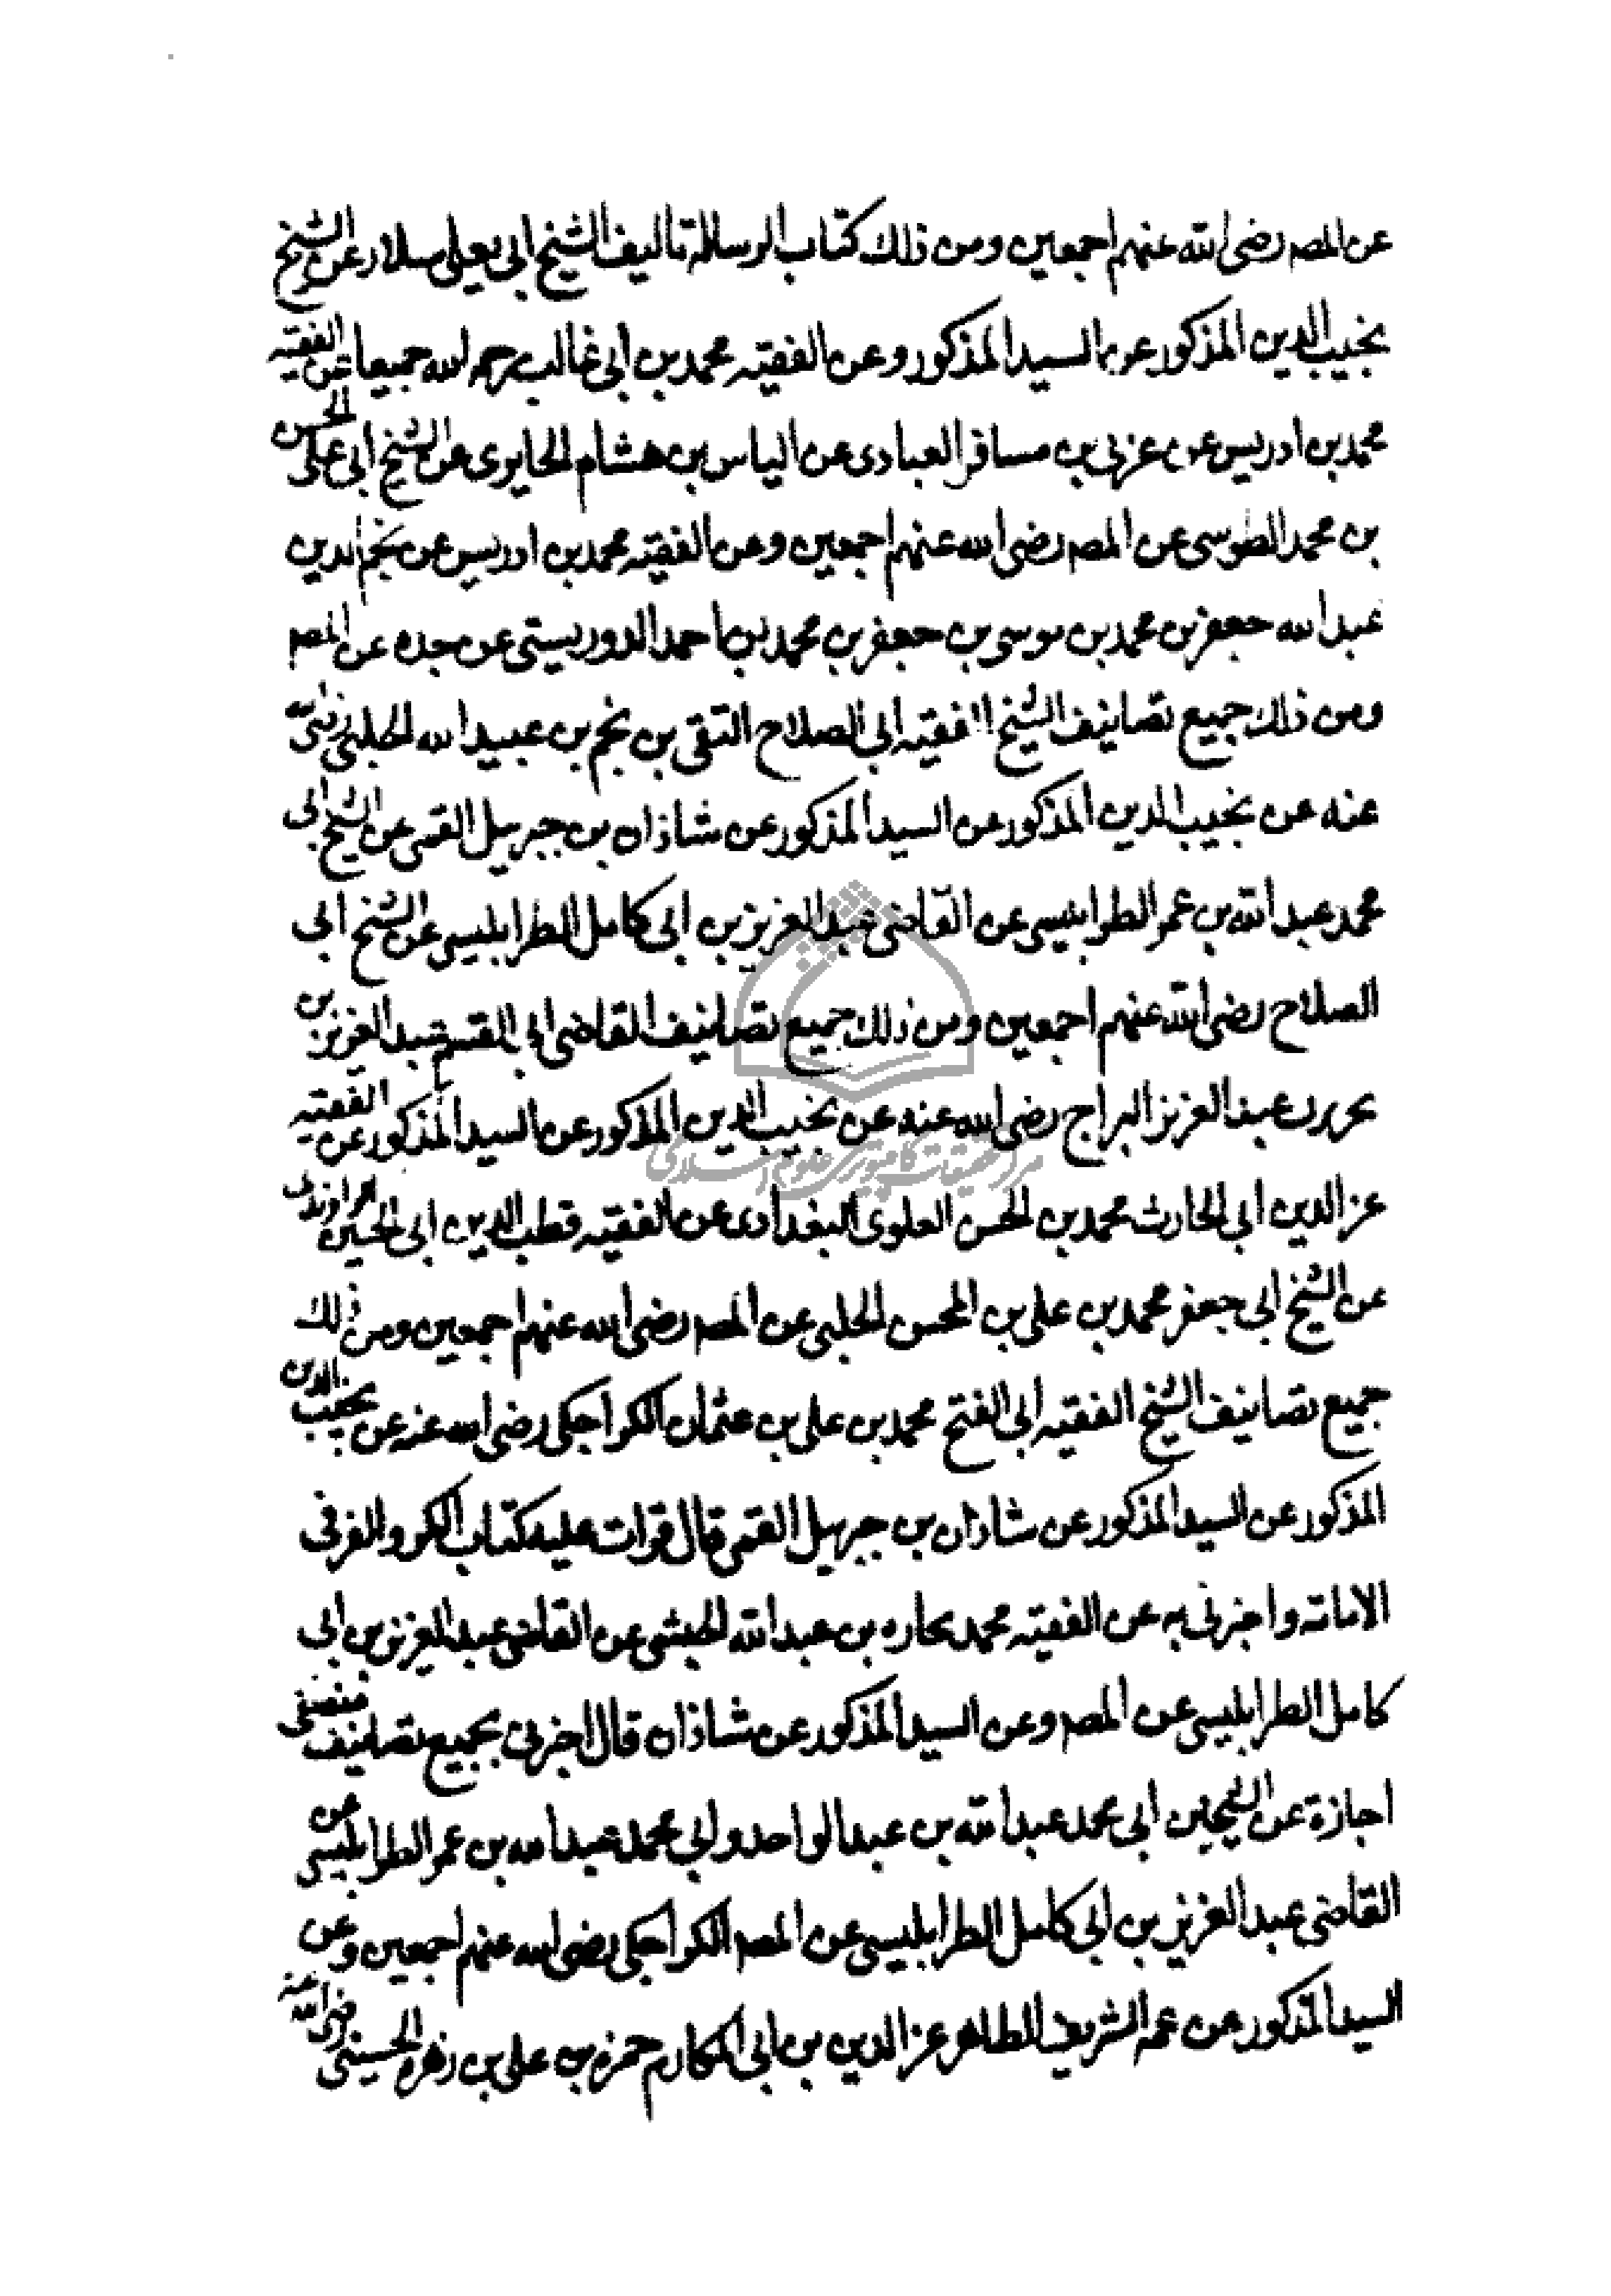 عن المصر رضى الله عنهم اجمعين ومن ذلك كتاب الرسالة تاليف الشيخ ابى يعلى سلار عن الشيخ
نجيب الدين المذكور عن السيد المذكور وعن الفقيه محمد بن ابى غالب رحمه الله جميعا عن الفقيه
محمد بن ادريس عن عربى بن مسافر العبادى عن الياس بن هشام الحايرى عن الشيخ ابى على الحسن
بن محمد الطوسى عن المصر رضى الله عنهم اجمعين وعن الفقيه محمد بن ادريس عن نجم الدين
عبد الله جعفر بن محمد بن موسى بن جعفر بن محمد بن احمد الدوريستى عن جده عن المصر
ومن ذلك جميع تصانيف الشيخ الفقيه ابى الصلاح التقى بن نجم بن عبيد الله الحلبى رضى الله
عنه عن نجيب الدين المذكور عن السيد المذكور عن شاذان بن جبرييل القمى عن الشيخ ابى
محمد عبد الله بن عمر الطرابلسى عن القاضى عبد العزيز بن ابى كامل الطرابليسى عن الشيخ ابى
الصلاح رضى الله عنهم اجمعين ومن ذلك جميع تصانيف القاضى ابى القسم عبد العزيز بن
نحرير بن عبد العزيز البراج رضى الله عنه عن نجيب الدين المذكور عن السيد المذكور عن الفقيه
عز الدين ابى الحارث محمد بن الحسن العلوى البغدادى عن الفقيه قطب الدين ابى الحسين الراوندى
عن الشيخ ابى جعفر محمد بن على بن المحسن الحلبى عن المصر رضى الله عنهم اجمعين ومن ذلك
جميع تصانيف الشيخ الفقيه ابى الفتح محمد بن على بن عثمان الكراجكى رضى الله عنه عن نجيب الدين
المذكور عن السيد المذكور عن شاذان بن جبرييل القمى قال قرات عليه كتاب الكر والفر فى
الامامة واخبرنى به عن الفقيه محمد بن عبد الله الحبشى عن القاضى عبد العزيز بن ابى
كامل الطرابليسى عن المصر وعن السيد المذكور عن شاذان قال اخبرنى بجميع تصانيف مصنفى
اجازة عن الشيخين ابى محمد عبد الله بن عبد الواحد وابى محمد عبد الله بن عمر الطرابليسى عن
القاضى عبد العزيز بن ابى كامل الطرابليسى عن المصر الكراجكى رضى الله عنهم اجمعين وعن
السيد المذكور عن عمه الشريف الطاهر عز الدين بن ابى المكارم حمزة بن على بن زهرة الحسينى رضى الله عنه
مركز تحقيقات كامپيوترى علوم اسلامى